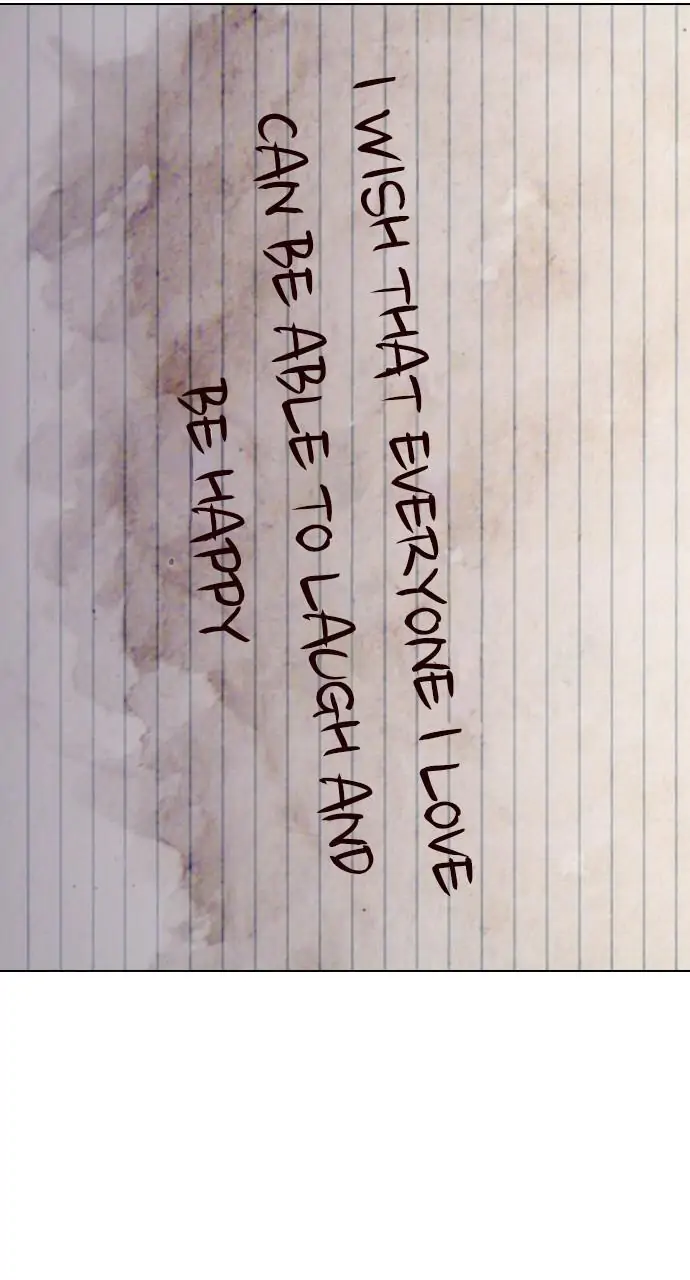 I WISH THAT EVERYONE I LOVE
CAN BE ABLE TO LAUGH AND
BE HAPPY